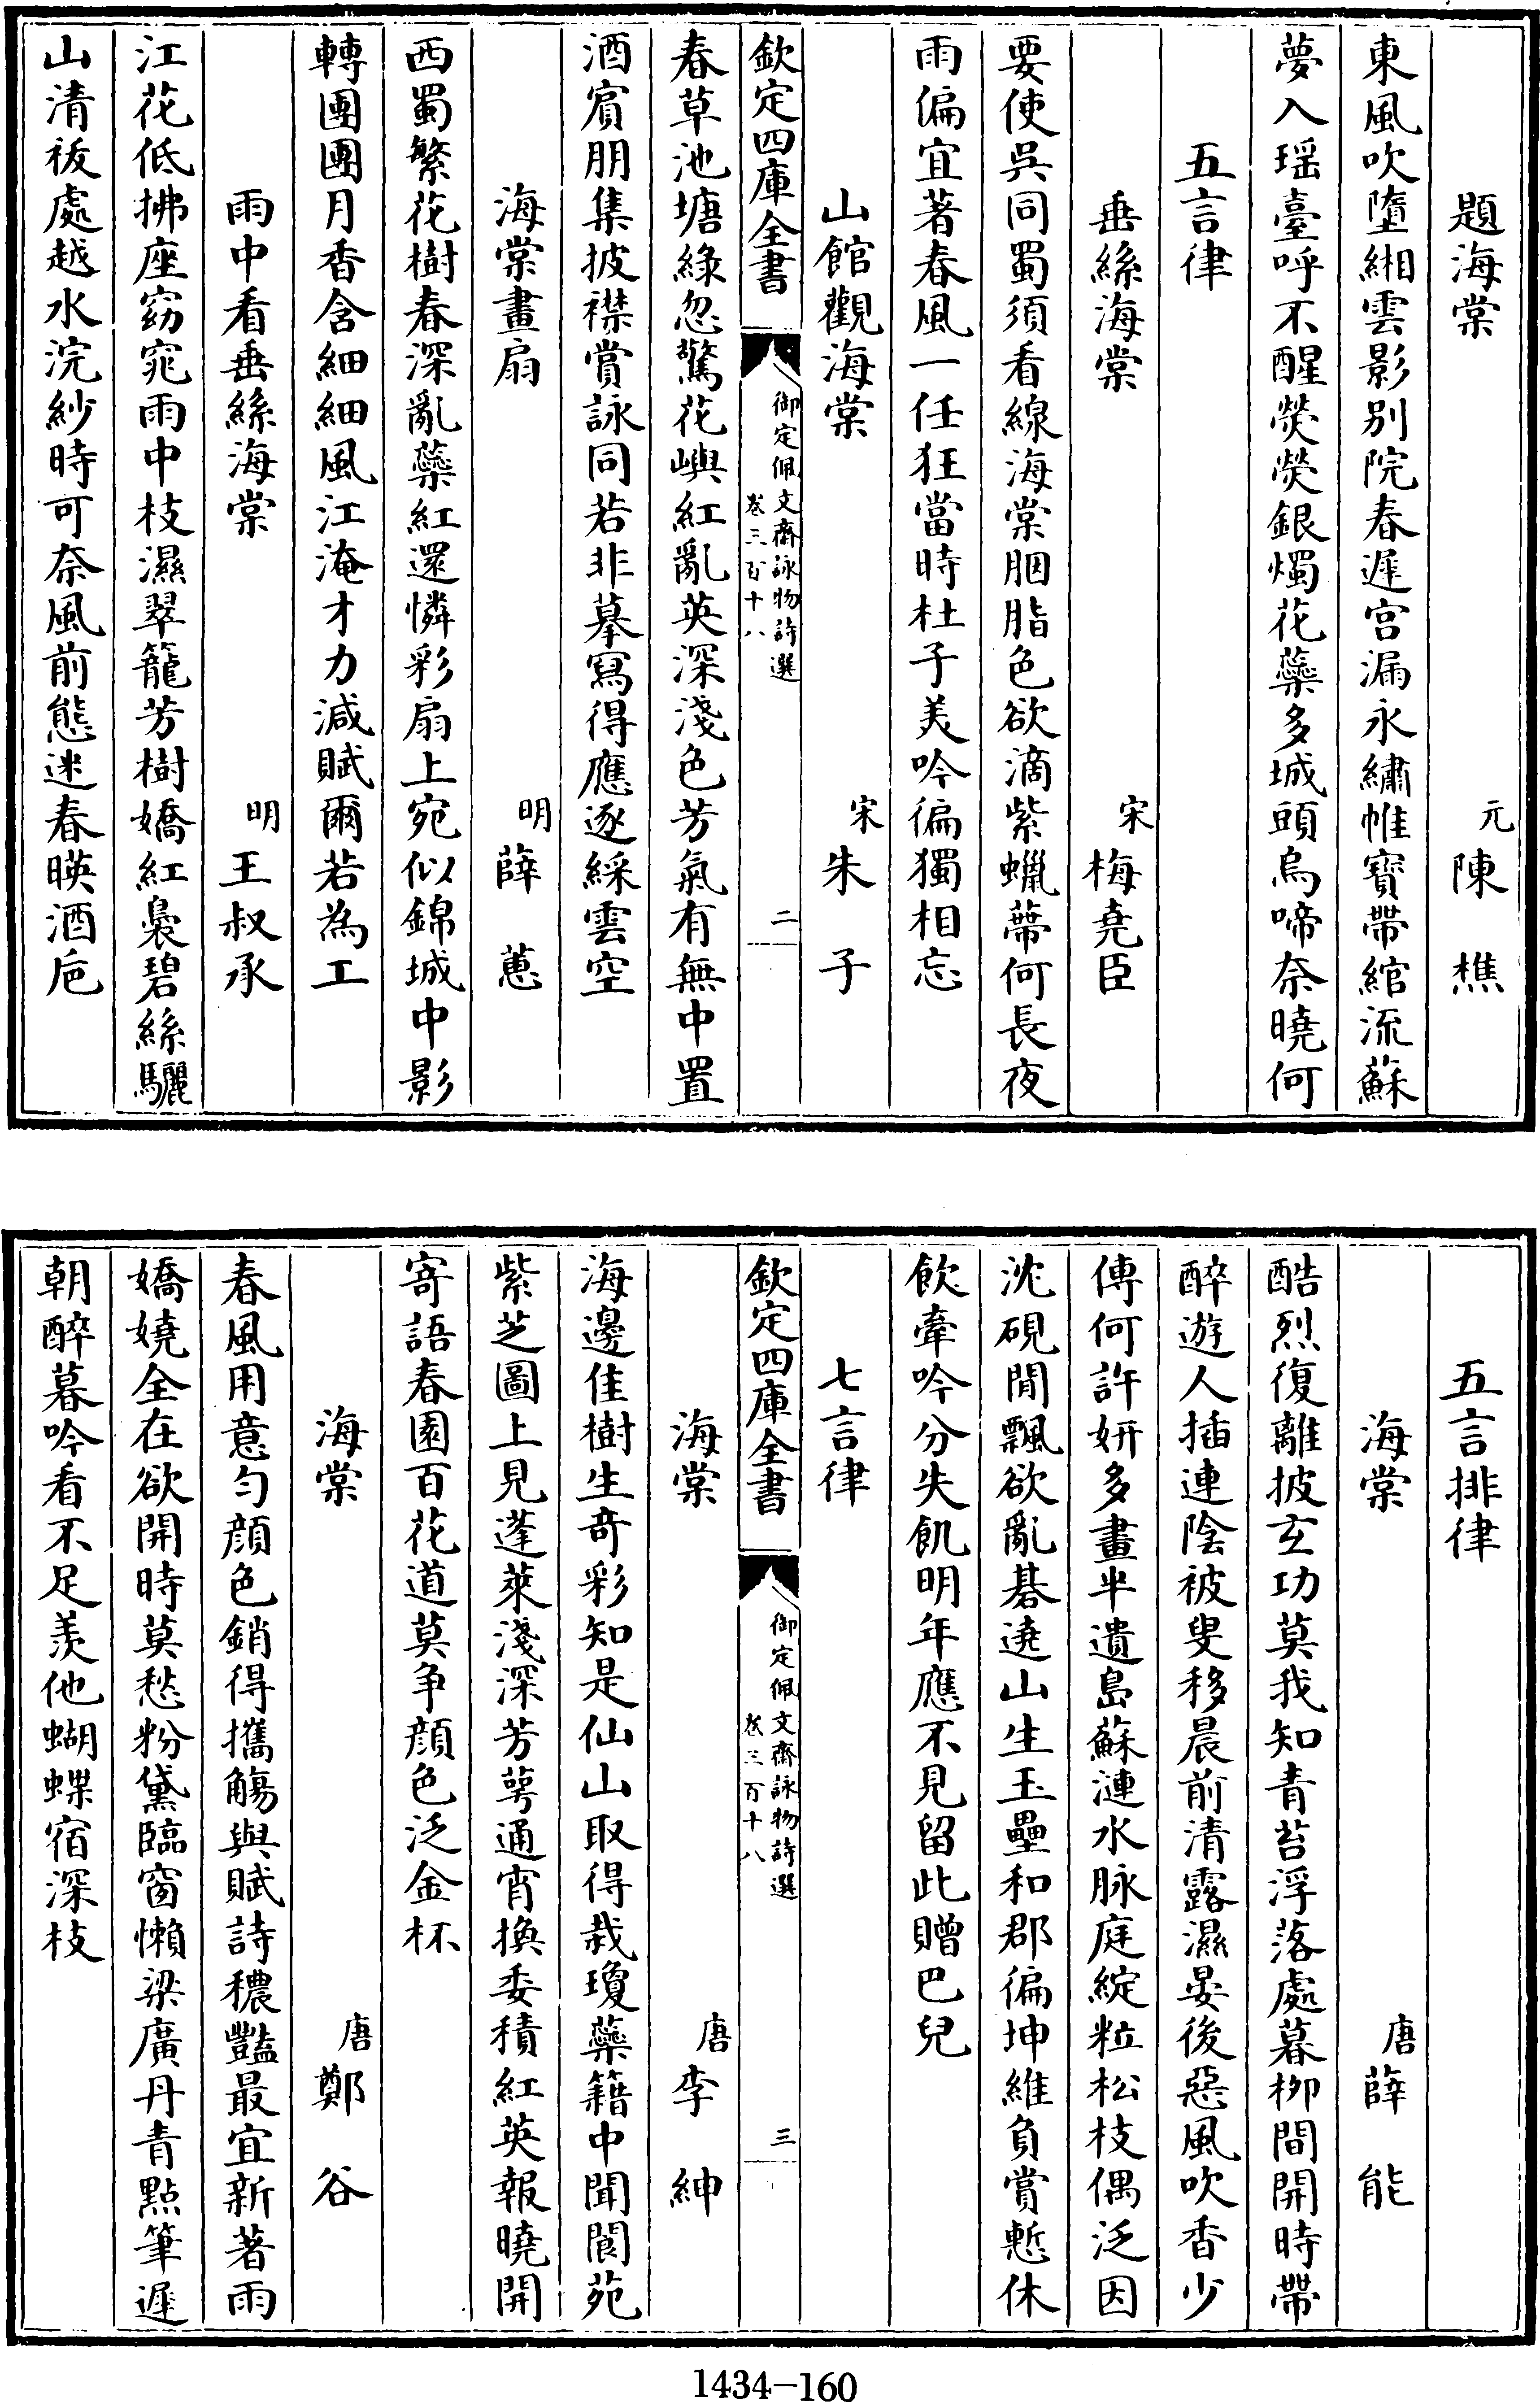 題海棠　元陳樵
東風吹墮緗雲影别院春遲宫漏永繡帷寶帶綰流蘇
夢入瑶臺呼不醒熒熒銀燭花蘂多城頭烏啼奈曉何
五言律
垂絲海棠　宋梅堯臣
要使吳同蜀須看線海棠胭脂色欲滴紫蠟蔕何長夜
雨偏宜著春風一任狂當時杜子美吟徧獨相忘
山館觀海棠　宋朱子
欽定四庫全書　御定佩文齋詠物詩選　卷三百十八　二
春草池塘綠忽驚花嶼紅亂英深淺色芳氣有無中置
酒賔朋集披襟賞詠同若非摹寫得應逐綵雲空
海棠畫扇　明薛蕙
西蜀繁花樹春深亂蘂紅還憐彩扇上宛似錦城中影
轉團團月香含細細風江淹才力減賦爾若為工
雨中看垂絲海棠　明王叔承
江花低拂座窈窕雨中枝濕翠籠芳樹嬌紅裊碧絲驪
山清祓處越水浣紗時可奈風前態迷春暎酒巵
五言排律
海棠　唐薛能
酷烈復離披𤣥功莫我知青苔浮落處暮栁間開時帶
醉遊人插連陰被叟移晨前清露濕晏後惡風吹香少
傳何許妍多畫半遺島蘇漣水脉庭綻粒松枝偶泛因
沈硯閒飄欲亂棊遶山生玉壘和郡徧坤維負賞慙休
飲牽吟分失飢明年應不見留此贈巴兒
七言律
欽定四庫全書　御定佩文齋詠物詩選　卷三百十八　三
海棠　唐李紳
海邊佳樹生奇彩知是仙山取得栽瓊蘂籍中聞閬苑
紫芝圖上見蓬萊淺深芳萼通宵換委積紅英報曉開
寄語春園百花道莫争顔色泛金杯
海棠　唐鄭谷
春風用意勻顔色銷得攜觴與賦詩穠豔最宜新著雨
嬌嬈全在欲開時莫愁粉黛臨窗懶梁廣丹青點筆遲
朝醉暮吟看不足羨他蝴蝶宿深枝
1434-160